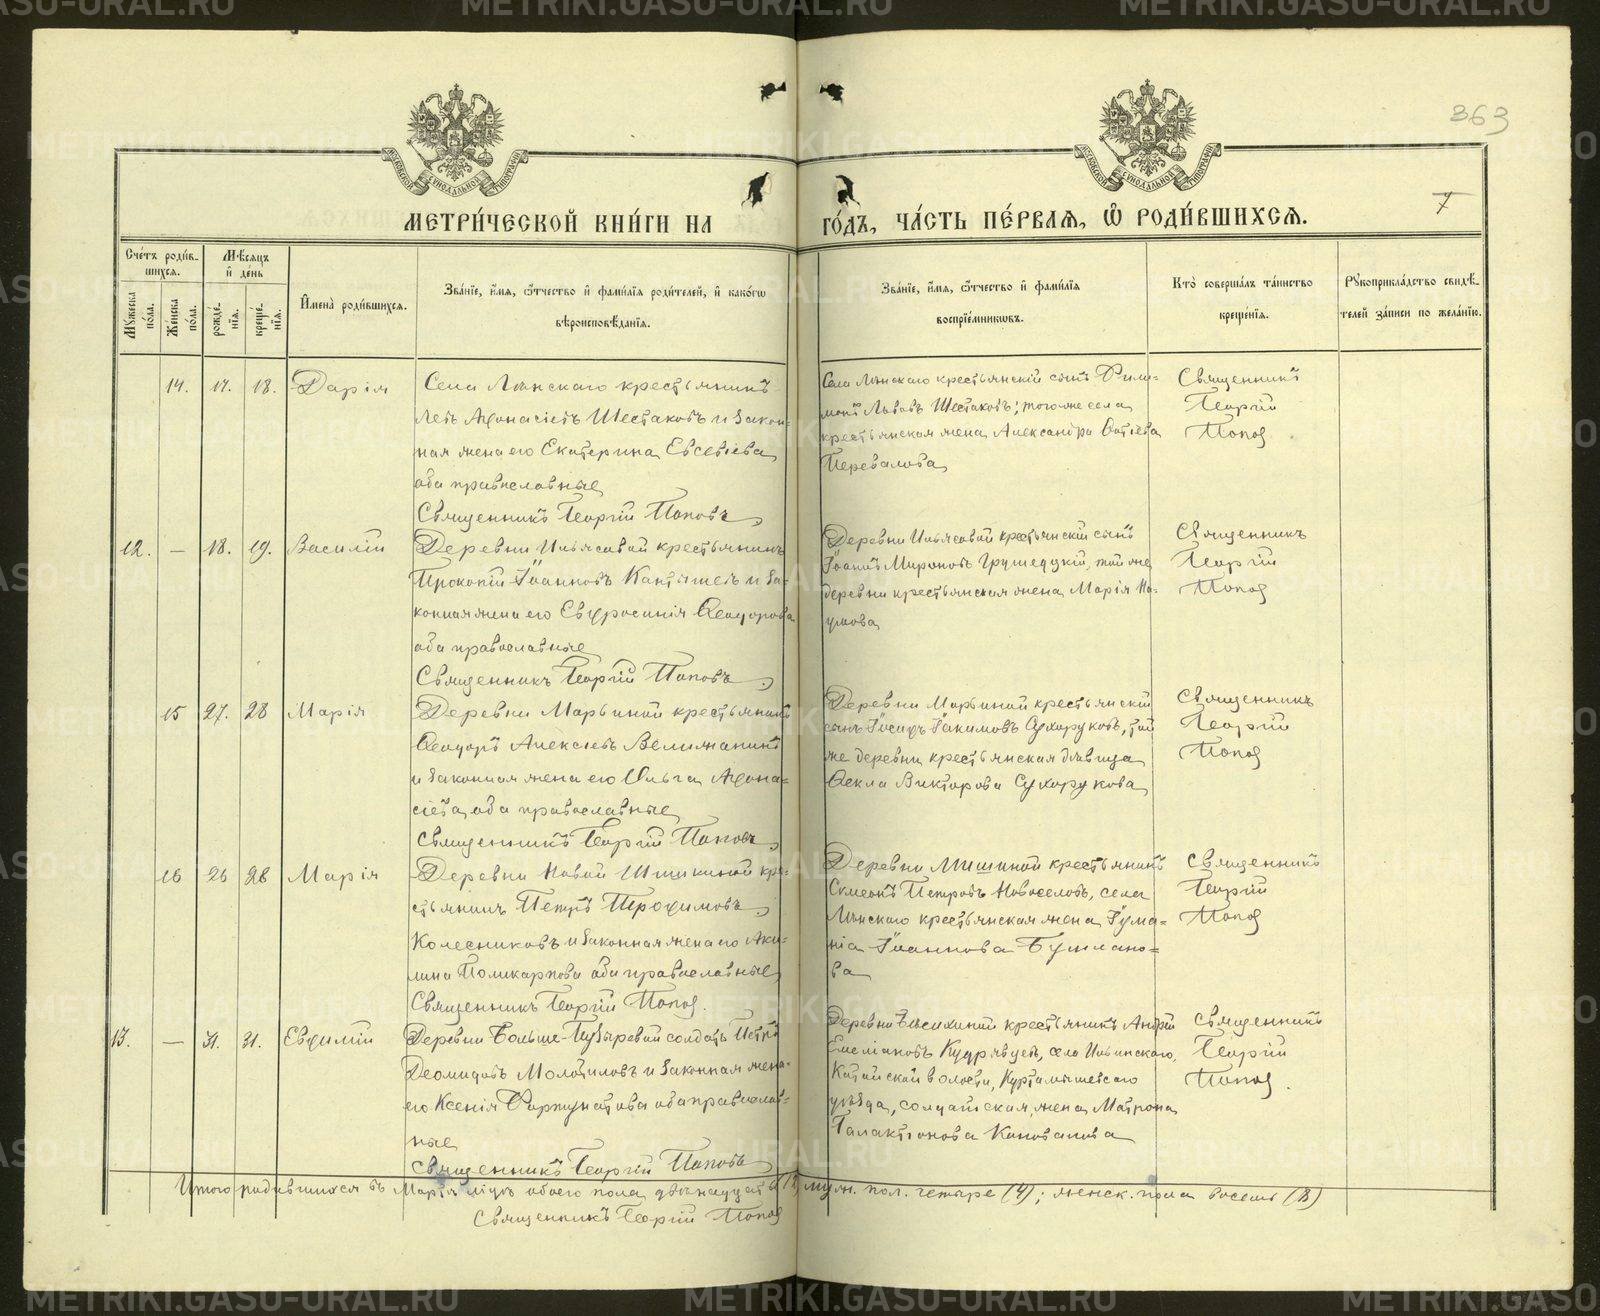 363
7
МЕТРИ́ЧЕСКОЙ КНИ́ГИ НА
ГО́ДЪ, ЧА́СТЬ ПЕ́РВАЯ, Ѿ РОДИ́ВШИХСѦ.
Сче́тъ роди́в-
шихся.
Мѣсяцъ
и де́нь
Му́жеска
по́ла.
Же́нска
по́ла.
рожде́-
нія.
креще́-
нія.
Имена̀ роди́вшихся.
Зва́ніе, и́мя, ѻ́тчество и фами́лія роди́телей, и како́гѡ
вѣроисповѣ́данія.
Зва́ніе, и́мя, ѻ́тчество и фами́лія
воспріе́мниковъ.
Кто̀ соверша́лъ та́инство
креще́нія.
Рукоприкла́дство свидѣ́-
телей за́писи по жела́нію.
14. 17. 18. Дарія
крестьянинъ
Левъ Аѳонасіевъ Шестаковъ и закон-
ная жена его Екатерина Евсевіева
оба православные
Священникъ Георгій Поповъ
крестьянскій сынъ Фили-
монъ Львовъ Шестаковъ; того же села
крестьянская жена Александра
Перевалова
Священникъ
Георгій
Попов
12. — 18. 19. Василій
Деревни Ильясовой крестьянинъ
Прокопій Іоанновъ и за-
конная жена его Евфросинія Ѳеодорова
оба православные
Священникъ Георгій Поповъ
Деревни Ильясовой крестьянскій сынъ
Іоаннъ Мироновъ Грушецкій, той же
деревни крестьянская жена Марія На-
умова
Священникъ
Георгій
Попов
15 27. 28 Марія
Деревни Марьиной крестьянинъ
Ѳеодоръ Алексіевъ Велижанинъ
и законная жена его Ольга Аѳона-
сіева оба православные
Священникъ Георгій Поповъ
Деревни Марьиной крестьянскій
сынъ Іосифъ Іакимовъ Сухоруковъ, той
же деревни крестьянская дѣвица
Ѳекла Викторова Сухорукова
Священникъ
Георгій
Попов
16 26 28 Марія
Деревни Новой Шишкиной кре-
стьянинъ Петръ Трофимовъ
Колесниковъ и законная жена его Аки-
лина Поликарпова оба православные
Священникъ Георгій Попов.
Деревни Мишиной крестьянинъ
Симеонъ Петровъ Новоселовъ, села
крестьянская жена Іулиа-
нія Іоаннова
ва
Священникъ
Георгій
Попов
13. — 31. 31. Евфимій
Деревни Больше-Пузыревой солдатъ Петръ
Деомидовъ Молотиловъ и законная жена
его Ксенія Фортунатова оба православ-
ные
Священникъ Георгій Поповъ
Деревни крестьянинъ Андрей
Емеліановъ Кудрявцевъ, села Ильинскаго,
Катайской волости, Камышловскаго
уѣзда, солдатская жена Матрона
Галактіонова Коновалова
Священникъ
Георгій
Попов.
Итого родившихся въ Мартѣ мѣсяцѣ обоего пола двѣнадцать (12) муж. пол. четыре (4); женск. пола восемь (8)
Священникъ Георгій Попов
METRIKI.GASO-URAL.RU